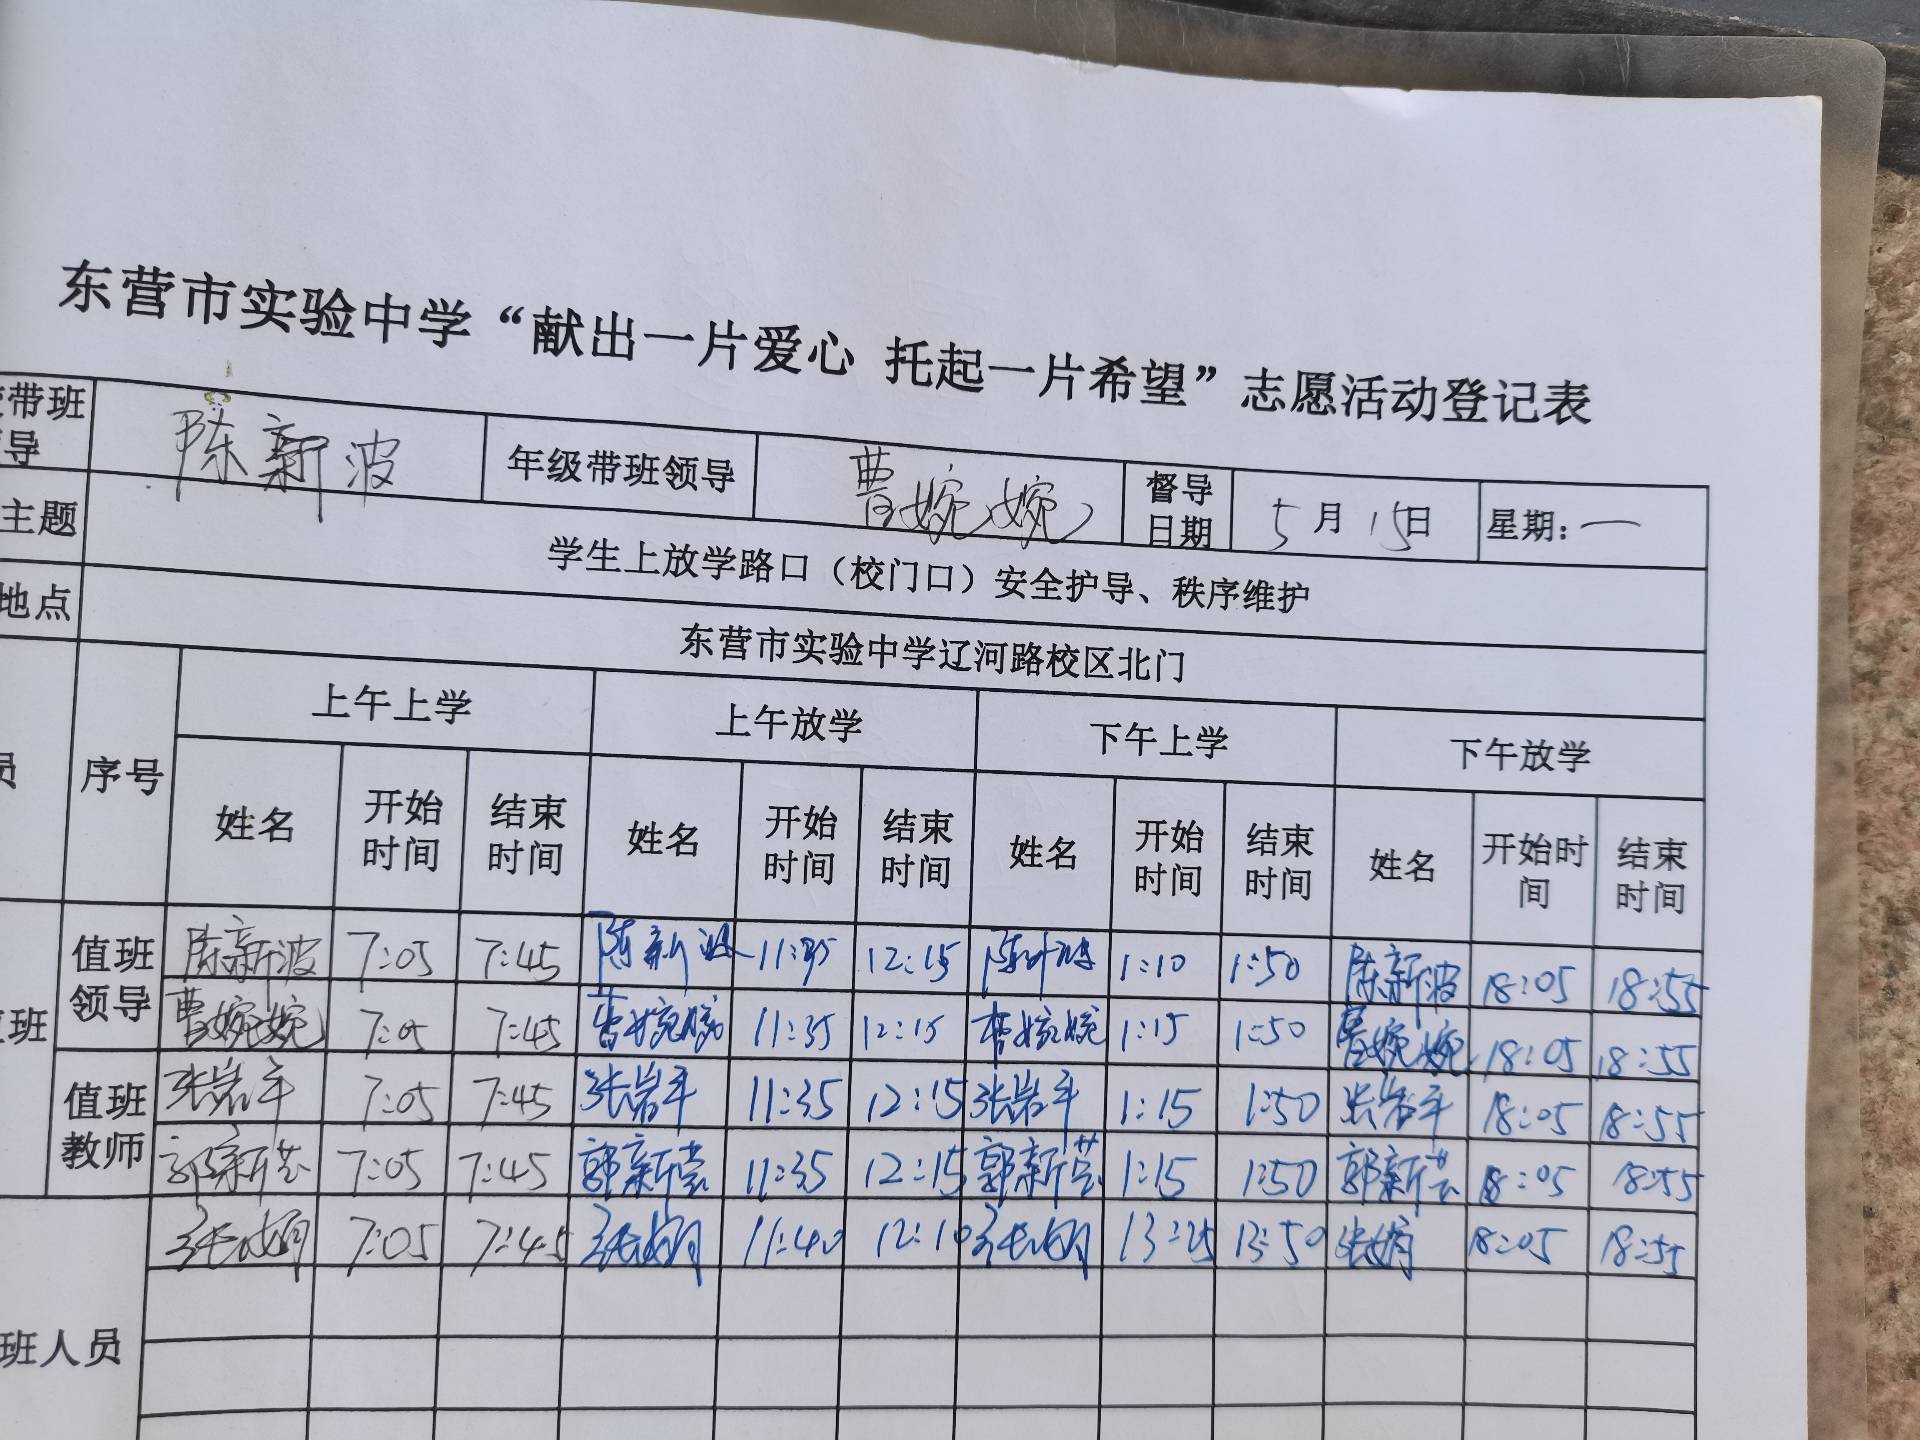 东营市实验中学“献出一片爱心 托起一片希望”志愿活动登记表
带班 陈新波 年级带班领导 曹婉婉 督导日期 5月15日 星期：一
导
主题 学生上放学路口（校门口）安全护导、秩序维护
地点 东营市实验中学辽河路校区北门
员 序号 上午上学 上午放学 下午上学 下午放学
姓名 开始时间 结束时间 姓名 开始时间 结束时间 姓名 开始时间 结束时间 姓名 开始时间 结束时间
班 值班领导 陈新波 7:05 7:45 陈新波 11:35 12:15 1:10 1:50 陈新波 18:05 18:55
曹婉婉 7:05 7:45 曹婉婉 11:35 12:15 曹婉婉 1:15 1:50 曹婉婉 18:05 18:55
值班教师 张岩平 7:05 7:45 张岩平 11:35 12:15 张岩平 1:15 1:50 张岩平 18:05 18:55
郭新芸 7:05 7:45 郭新芸 11:35 12:15 郭新芸 1:15 1:50 郭新芸 18:05 18:55
张娟 7:05 7:45 张娟 11:40 12:10 张娟 13:25 13:50 张娟 18:05 18:55
班人员